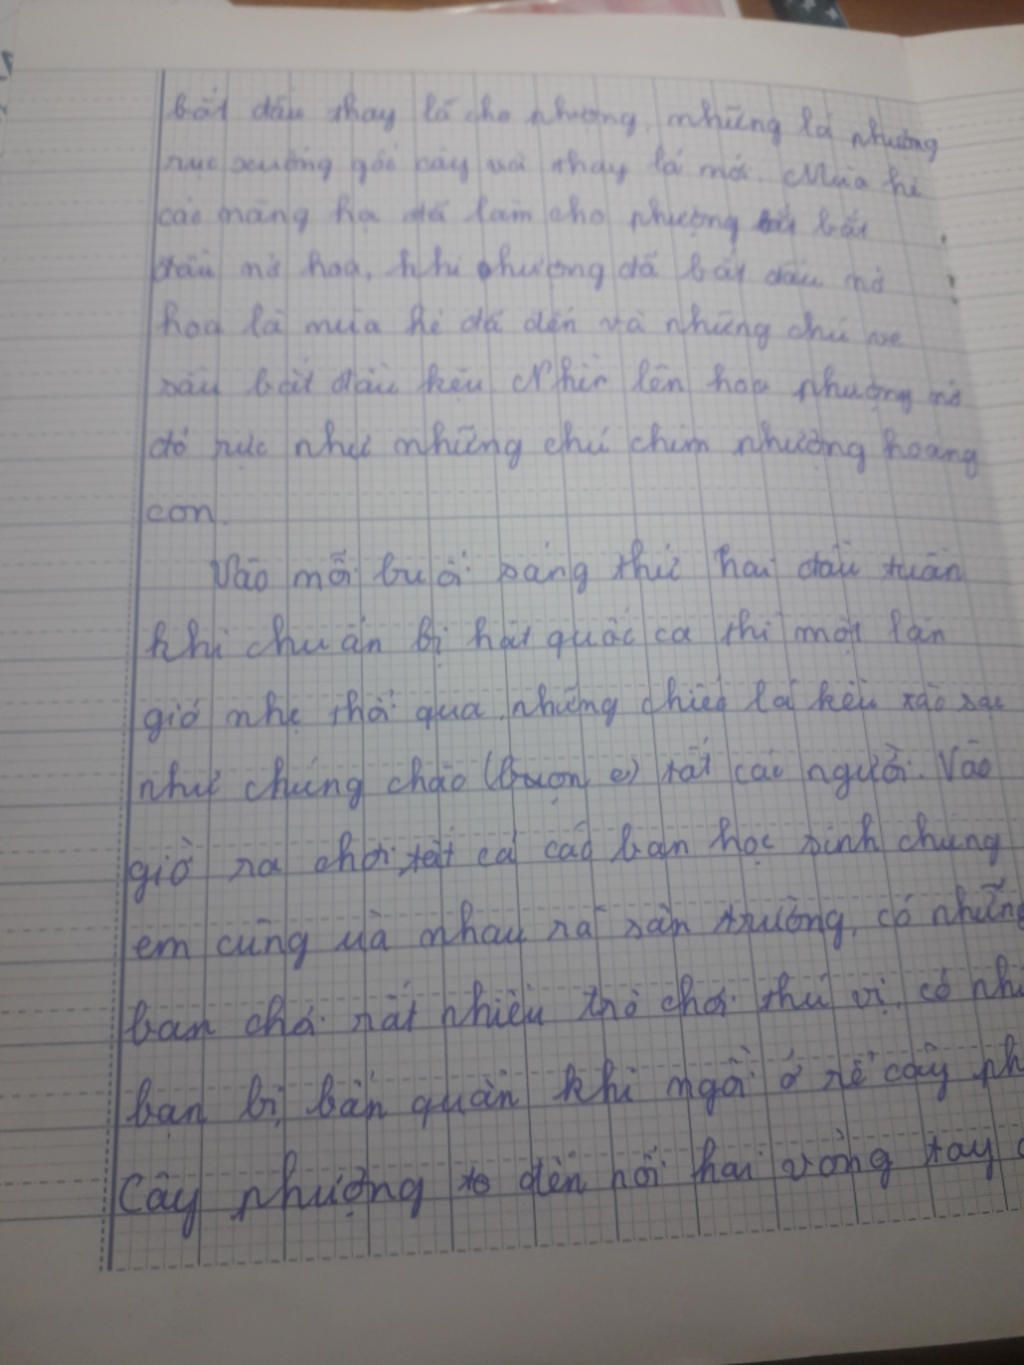 bắt đầu thay lá cho phượng, những lá phượng
rục xuống gốc cây và thay lá mới. Mùa hè
các nàng hạ đã làm cho phượng bắt
đầu nở hoa, khi phượng đã bắt đầu nở
hoa là mùa hè đã đến và những chú ve
sầu bắt đầu kêu Nhìn lên hoa phượng nở
đỏ rực như những chú chim phượng hoàng
con.
Vào mỗi buổi sáng thứ hai đầu tuần
khi chuẩn bị hát quốc ca thì một làn
gió nhẹ thổi qua, những chiếc lá kêu xào xạc
như chúng chào (buọn e) tất các người. Vào
giờ ra chơi, tất cả các bạn học sinh chúng
em cùng ùà nhau ra sân trường, có những
bạn chơi rất nhiều trò chơi thú vị, có
bạn bị bẩn quần khi ngồi ở rễ cây
Cây phượng to đến nỗi hai vòng tay